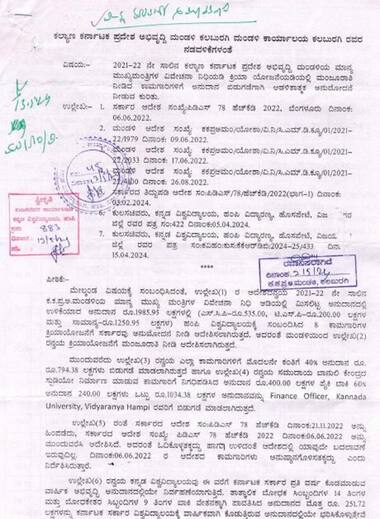 ಕಲ್ಯಾಣ ಕರ್ನಾಟಕ ಪ್ರದೇಶ ಅಭಿವೃದ್ಧಿ ಮಂಡಳಿ ಕಲಬುರಗಿ ಮಂಡಳಿ ಕಾರ್ಯಾಲಯ ಕಲಬುರಗಿ ರವರ
ನಡವಳಿಕೆಗಳಂತೆ
ವಿಷಯ:- 2021-22 ನೇ ಸಾಲಿನ ಕಲ್ಯಾಣ ಕರ್ನಾಟಕ ಪ್ರದೇಶ ಅಭಿವೃದ್ಧಿ ಮಂಡಳಿಯ ಮಾನ್ಯ
ಮುಖ್ಯಮಂತ್ರಿಗಳ ವಿವೇಚನಾ ನಿಧಿಯಡಿ ಕ್ರಿಯಾ ಯೋಜನೆಯಡಿಯಲ್ಲಿ ಮಂಜೂರಾತಿ
ನೀಡಿದ ಕಾಮಗಾರಿಗಳಿಗೆ ಅನುದಾನ ಬಿಡುಗಡೆಗಾಗಿ ಆಡಳಿತಾತ್ಮಕ ಅನುಮೋದನೆ
ನೀಡುವ ಕುರಿತು.
ಉಲ್ಲೇಖ:- 1. ಸರ್ಕಾರ ಆದೇಶ ಸಂಖ್ಯೆ:ಪಿಡಿಎಸ್ 78 ಹೆಚ್‌ಕೆಡಿ 2022, ಬೆಂಗಳೂರು ದಿನಾಂಕ:
06.06.2022.
2. ಮಂಡಳಿ ಆದೇಶ ಸಂಖ್ಯೆ: ಕಕಪ್ರಅಮಂ/ಯೋಶಾ/ವಿ.ನಿ/ಸಿ.ಎಮ್.ಡಿ.ಕ್ಯೂ/01/2021-
22/1979 ದಿನಾಂಕ: 09.06.2022.
ಮಂಡಳಿ ಆದೇಶ ಸಂಖ್ಯೆ: ಕಕಪ್ರಅಮಂ/ಯೋಶಾ/ವಿ.ನಿ/ಸಿ.ಎಮ್.ಡಿ.ಕ್ಯೂ/01/2021-
22/2033 ದಿನಾಂಕ: 17.06.2022.
ಮಂಡಳಿ ಆದೇಶ ಸಂಖ್ಯೆ: ಕಕಪ್ರಅಮಂ/ಯೋಶಾ/ವಿ.ನಿ/ಸಿ.ಎಮ್.ಡಿ.ಕ್ಯೂ/01/2021-
ದಿನಾಂಕ: 26.08.2022.
ಸರ್ಕಾರದ ತಿದ್ದುಪಡಿ ಆದೇಶ ಸಂ:ಪಿಡಿಎಸ್/78/ಹೆಚ್‌ಕೆಡಿ/2022(ಭಾಗ-1) ದಿನಾಂಕ:
.02.2024.
6. ಕುಲಸಚಿವರು, ಕನ್ನಡ ವಿಶ್ವವಿದ್ಯಾಲಯ, ಹಂಪಿ ವಿದ್ಯಾರಣ್ಯ, ಹೊಸಪೇಟೆ,
ಜಿಲ್ಲೆ ರವರ ಪತ್ರ ಸಂ:422 ದಿನಾಂಕ:05.04.2024.
7. ಕುಲಸಚಿವರು, ಕನ್ನಡ ವಿಶ್ವವಿದ್ಯಾಲಯ, ಹಂಪಿ ವಿದ್ಯಾರಣ್ಯ, ಹೊಸಪೇಟೆ, ವಿಜಯ
ಜಿಲ್ಲೆ ರವರ ಪತ್ರ 2024-25/433
15.04.2024.
****
ಸ್ವೀಕೃತಿ
883
ರವಾನಿಸಲಾಗಿದೆ
ದಿನಾಂಕ: 2/5/24
ಕ.ಕ.ಪ್ರ.ಅ.ಮಂಡಳಿ, ಕಲಬುರಗಿ
ಪೀಠಿಕೆ:-
ಮೇಲ್ಕಂಡ ವಿಷಯಕ್ಕೆ ಸಂಬಂಧಿಸಿದಂತೆ, ಉಲ್ಲೇಖ(1) ರ ಆದೇಶದನ್ವಯ 2021-22 ನೇ ಸಾಲಿನ
ಕ.ಕ.ಪ್ರ.ಅ.ಮಂಡಳಿಯ ಮಾನ್ಯ ಮುಖ್ಯ ಮಂತ್ರಿಗಳ ವಿವೇಚನಾ ನಿಧಿ ಅಡಿಯಲ್ಲಿ ಮೀಸಲಿಟ್ಟ ಅನುದಾನದಲ್ಲಿ
ಉಳಿಕೆಯಾದ ಅನುದಾನ ರೂ.1985.95 ಲಕ್ಷಗಳಲ್ಲಿ (ಎಸ್.ಸಿ.ಪಿ-ರೂ.535.00, ಟಿ.ಎಸ್.ಪಿ-ರೂ.200.00 ಲಕ್ಷಗಳು
ಮತ್ತು ಸಾಮಾನ್ಯ-ರೂ.1250.95 ಲಕ್ಷಗಳು) ಹಂಪಿ ವಿಶ್ವವಿದ್ಯಾಲಯಕ್ಕೆ ಸಂಬಂಧಿಸಿದ 8 ಕಾಮಗಾರಿಗಳ
ಕ್ರಿಯಾಯೋಜನೆಗೆ ಸರ್ಕಾರವು ಅನುಮೋದನೆ ನೀಡಿ ಆದೇಶಿಸಲಾಗಿರುತ್ತದೆ. ಅದರಂತೆ ಮಂಡಳಿಯಿಂದ ಉಲ್ಲೇಖ(2)
ರನ್ವಯ ಕ್ರಿಯಾಯೋಜನೆಗೆ ಮಂಜೂರಾತಿ ನೀಡಿ ಆದೇಶಿಸಲಾಗಿರುತ್ತದೆ.
ಮುಂದುವರೆದು ಉಲ್ಲೇಖ(3) ರನ್ವಯ ಎಲ್ಲಾ ಕಾಮಗಾರಿಗಳಿಗೆ ಮೊದಲನೇ ಕಂತಿಗೆ 40% ಅನುದಾನ ರೂ.
ರೂ.794.38 ಲಕ್ಷಗಳು ಬಿಡುಗಡೆ ಮಾಡಲಾಗಿರುತ್ತದೆ ಹಾಗೂ ಉಲ್ಲೇಖ(4) ರನ್ವಯ ಸಮುದಾಯ ಬಾನುಲಿ ಕೇಂದ್ರದ
ಸ್ಟುಡಿಯೋ ನಿರ್ಮಾಣ ಮಾಡುವ ಕಾಮಗಾರಿಗೆ ನಿಗಧಿಪಡಿಸಿದ ಅನುದಾನ ರೂ.400.00 ಲಕ್ಷಗಳ ಪೈಕಿ ಬಾಕಿ 60%
ಅನುದಾನ 240.00 ಲಕ್ಷಗಳು ಒಟ್ಟು ರೂ.1034.38 ಲಕ್ಷಗಳ ಅನುದಾನವನ್ನು Finance Officer, Kannada
University, Vidyaranya Hampi ರವರಿಗೆ ಬಿಡುಗಡೆ ಮಾಡಲಾಗಿರುತ್ತದೆ.
ಉಲ್ಲೇಖ(5) ರಂತೆ ಸರ್ಕಾರದ ಆದೇಶ ಸಂಖ್ಯೆ:ಪಿಡಿಎಸ್ 78 ಹೆಚ್‌ಕೆಡಿ 2022 ದಿನಾಂಕ:21.11.2022 ಅನ್ನು
ಹಿಂಪಡೆದು, ಸರ್ಕಾರದ ಆದೇಶ ಸಂಖ್ಯೆ: ಪಿಡಿಎಸ್ 78 ಹೆಚ್‌ಕೆಡಿ 2022 ದಿನಾಂಕ:06.06.2022 ಅನ್ನು
ಮುಂದುವರೆಸಿ ಆದೇಶಿಸಿದೆ. ಅದರಂತೆ ಹಾಗೂ ಉಳಿದಂತೆ ಆದೇಶದಲ್ಲಿ ಯಾವುದೇ ಬದಲಾವಣೆ
ಇರುವುದಿಲ್ಲ. ದಿನಾಂಕ:06.06.2022 ರ ಆದೇಶದ ಕಾಮಗಾರಿಗಳು ಅನುಷ್ಠಾನಗೊಳಿಸತಕ್ಕದ್ದು ಎಂದು
ನಿರ್ದೇಶಿಸಿರುತ್ತಾರೆ.
ಉಲ್ಲೇಖ(6) ರನ್ವಯ ಕನ್ನಡ ವಿಶ್ವವಿದ್ಯಾಲಯವು ಈ ವರೆಗೆ ಕರ್ನಾಟಕ ಸರ್ಕಾರ ಪ್ರತಿ ವರ್ಷ ಕೊಡಮಾಡುವ
ವಾರ್ಷಿಕ ಅಭಿವೃದ್ಧಿ ಅನುದಾನದಲ್ಲಿಯೇ ನಿರ್ವಹಣೆಯಾಗುತ್ತಿದೆ. ತಾತ್ಕಾಲಿಕ ಬೋಧಕ ಸಿಬ್ಬಂದಿಗಳ 14 ತಿಂಗಳು
ಮತ್ತು ಬೋಧಕೇತರ ಸಿಬ್ಬಂದಿಗಳ 9 ತಿಂಗಳ ಬಾಕಿ ವೇತನಕ್ಕಾಗಿ ಪಾವತಿಸಿದ ಅನುದಾನದ ಮೊತ್ತ ರೂ. 251.72
ಲಕ್ಷಗಳನ್ನು ಕರ್ನಾಟಕ ಸರ್ಕಾರ ವಿಶ್ವವಿದ್ಯಾಲಯಕ್ಕೆ ವಾರ್ಷಿಕವಾಗಿ ಕೊಡುತ್ತಿರುವ ಅನುದಾನದಲ್ಲಿಯೇ ಭರಿಸಿಕೊಳ್ಳುತ್ತೇವೆ